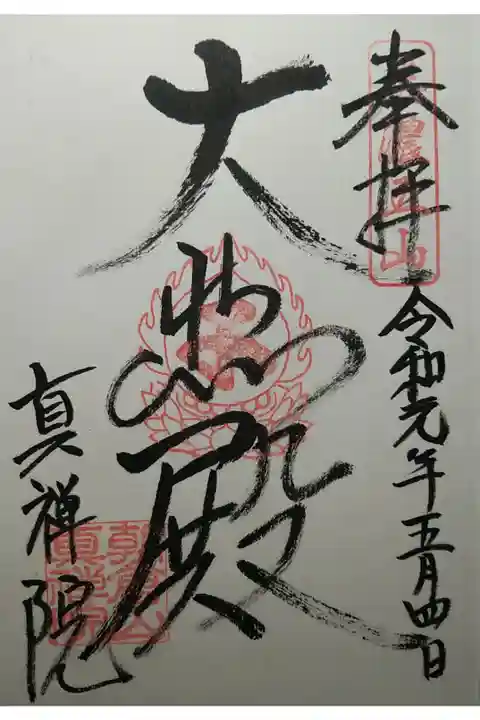 奉拝
令和元年五月四日
大悲殿
真禅院
朝倉山